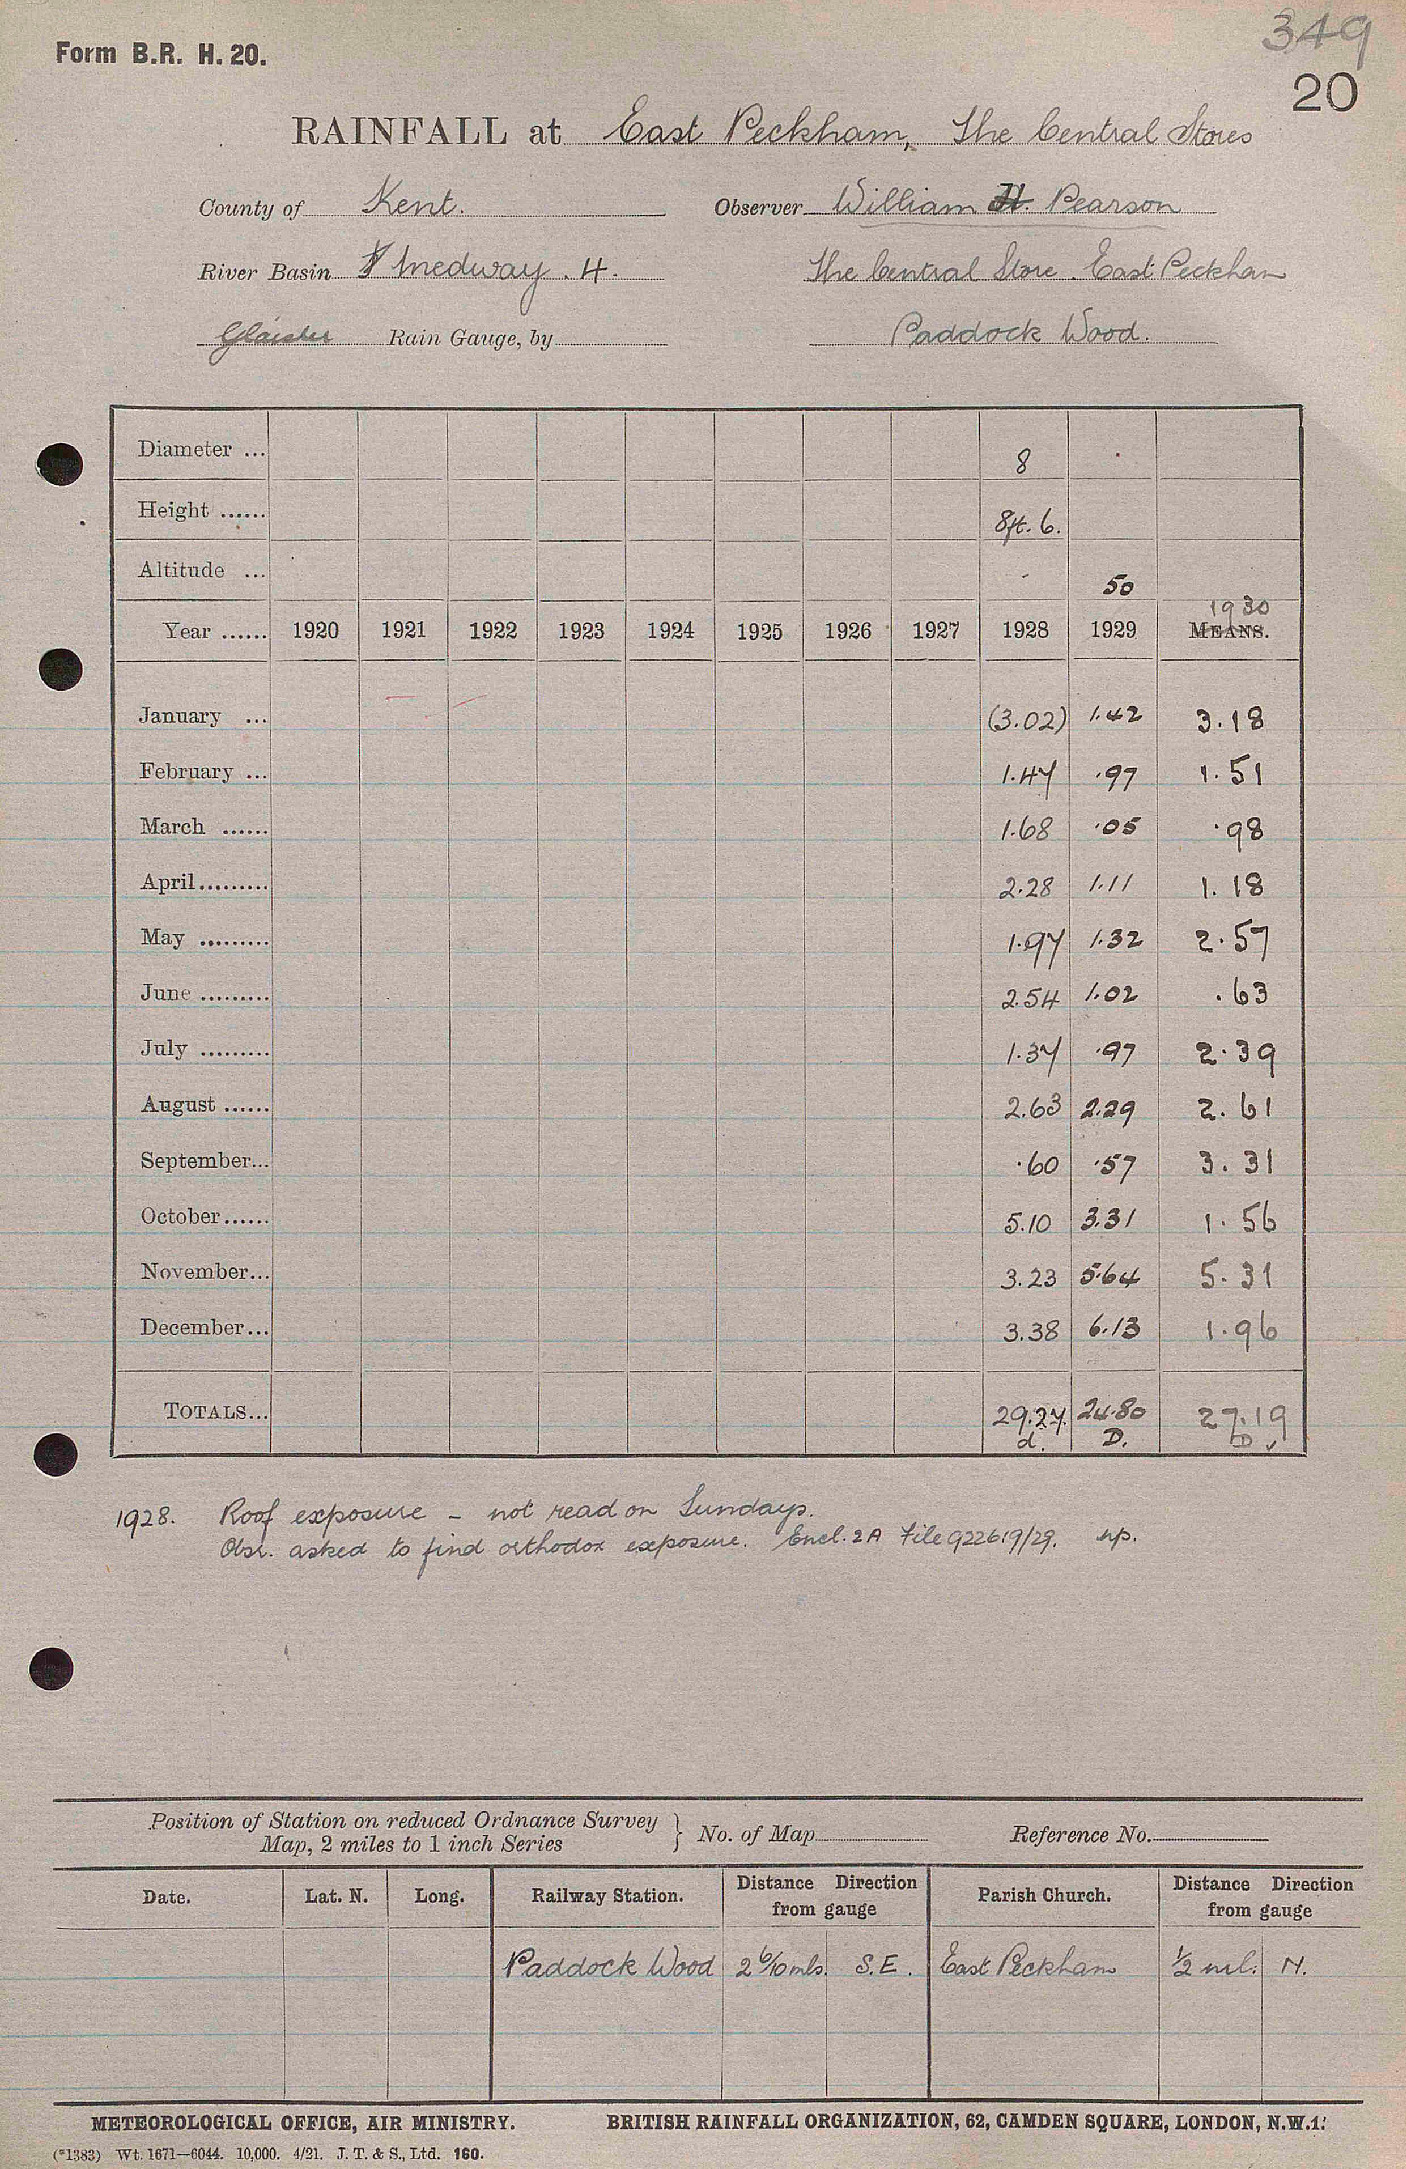 349
Form B.R. H. 20.
20
RAINFALL at East Peckham, The Central Stores
County of Kent. Observer William H. Pearson
River Basin Medway. 4. The Central Store. East Peckham
Glaisher Rain Gauge, by Paddock Wood.
Diameter ... 8
Height ...... 8ft. 6.
Altitude ... - 50
1930
Year ...... 1920 1921 1922 1923 1924 1925 1926 1927 1928 1929 MEANS.
January ... (3.02) 1.42 3.18
February ... 1.47 .97 1.51
March ...... 1.68 .05 .98
April......... 2.28 1.11 1.18
May ......... 1.97 1.32 2.57
June ......... 2.54 1.02 .63
July ......... 1.37 .97 2.39
August ...... 2.63 2.29 2.61
September... .60 .57 3.31
October...... 5.10 3.31 1.56
November... 3.23 5.64 5.31
December... 3.38 6.13 1.96
TOTALS... 29.27 24.80 27.19
d. D. D ✓
1928. Roof exposure – not read on Sundays.
Obsr. asked to find orthodox exposure. Encl. 2A File 922619/29. np.
Position of Station on reduced Ordnance Survey
Map, 2 miles to 1 inch Series } No. of Map Reference No.
Date. Lat. N. Long. Railway Station. Distance Direction from gauge Parish Church. Distance Direction from gauge
Paddock Wood 2 6/10 mls. S.E. East Peckham 1/2 ml. N.
METEOROLOGICAL OFFICE, AIR MINISTRY. BRITISH RAINFALL ORGANIZATION, 62, CAMDEN SQUARE, LONDON, N.W.1.
(*1383) Wt. 1671—6044. 10,000. 4/21. J. T. & S., Ltd. 160.